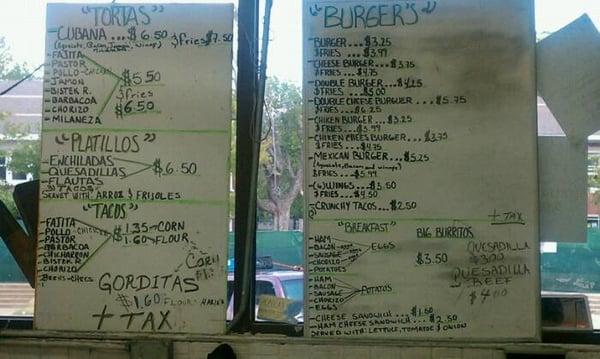 "TORTAS"
CUBANA... $6.50 $fries $7.50
FAJITA
PASTOR
POLLO-CHICKEN
JAMON
BISTEK R.
BARBACOA
CHORIZO
MILANEZA
$5.50
$fries
$6.50
"PLATILLOS"
ENCHILADAS
QUESADILLAS
FLAUTAS
TACOS
$6.50
SERVET WITH: ARROZ & FRIJOLES
"TACOS"
FAJITA
POLLO CHICKEN
PASTOR
BARBACOA
CHICHARRON
BISTEK R.
CHORIZO
BEENS-CHEES
$1.35-CORN
1.60-FLOUR
CORN
GORDITAS
$1.60 FLOUR
+ TAX
"BURGER'S"
BURGER... $3.25
$FRIES... $3.99
CHEESE BURGER... $3.75
$FRIES... $4.75
DOUBLE BURGER... $4.25
$FRIES... $5.00
DOUBLE CHEESE BURGUER... $5.75
$FRIES... $6.25
CHIKEN BURGER... $3.25
$FRIES... $3.99
CHIKEN CHEES BURGER... $3.75
$FRIES... $4.75
MEXICAN BURGER... $5.25
$FRIES... $5.99
(6) WINGS... $3.50
$FRIES... $4.50
CRUNCHY TACOS... $2.50
+ TAX
"BREAKFAST"
HAM
BACON
SAUSAGE
CHORIZO
POTATOES
EGGS
HAM
BACON
SAUSAGE
CHORIZO
EGGS
POTATOS
BIG BURRITOS
$3.50
QUESADILLA
$3.00
QUESADILLA
BEEF
$4.00
CHEESE SANDWICH... $1.50
HAM CHEESE SANDWICH... $2.50
SERVED WITH: LETTUCE, TOMATOE & ONION